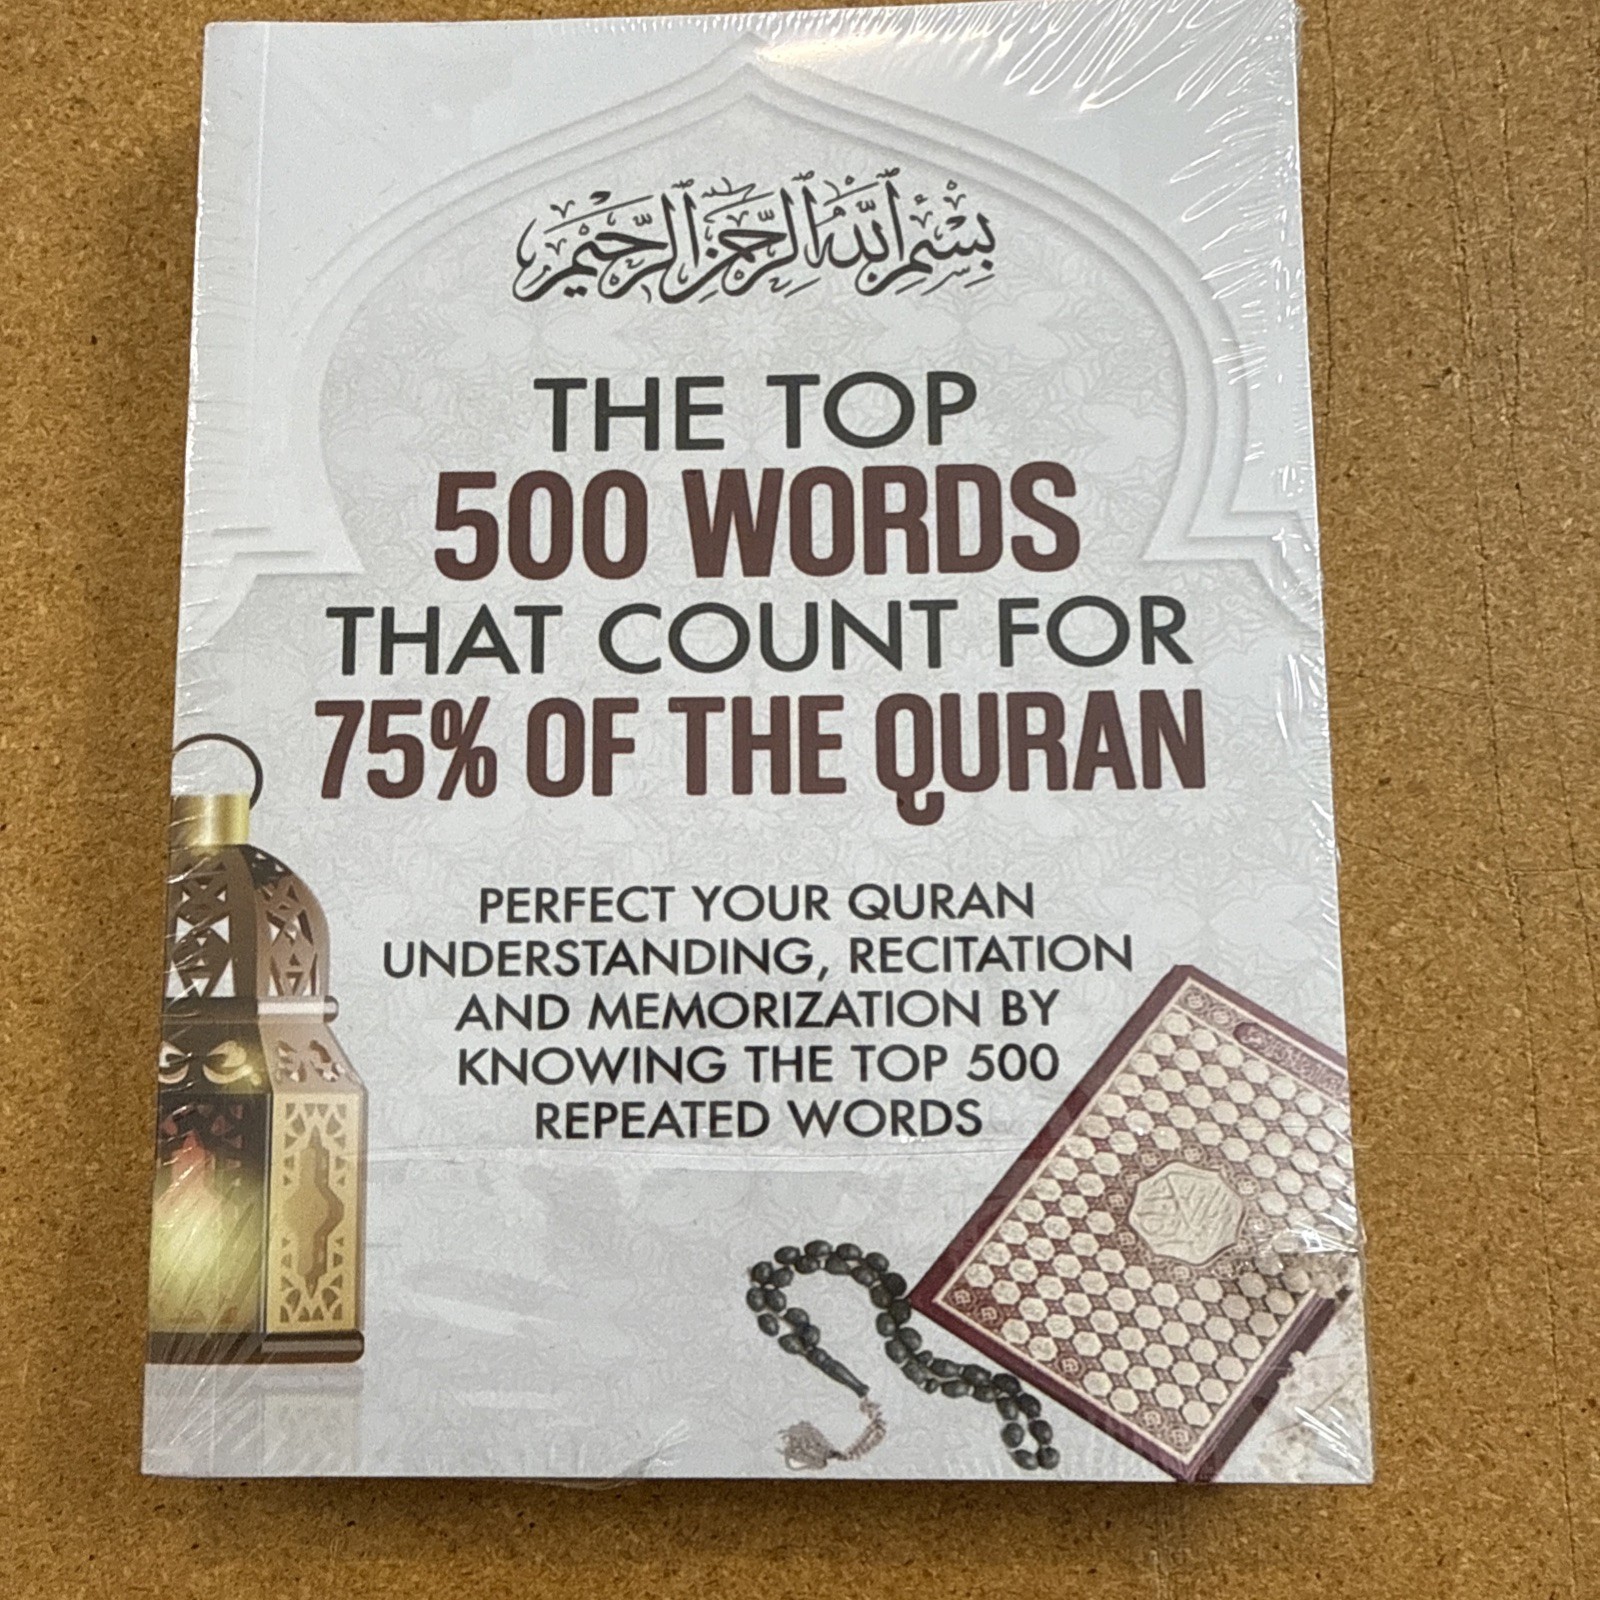 بِسْمِ اللهِ الرَّحْمَنِ الرَّحِيمِ
THE TOP
500 WORDS
THAT COUNT FOR
75% OF THE QURAN
PERFECT YOUR QURAN
UNDERSTANDING, RECITATION
AND MEMORIZATION BY
KNOWING THE TOP 500
REPEATED WORDS